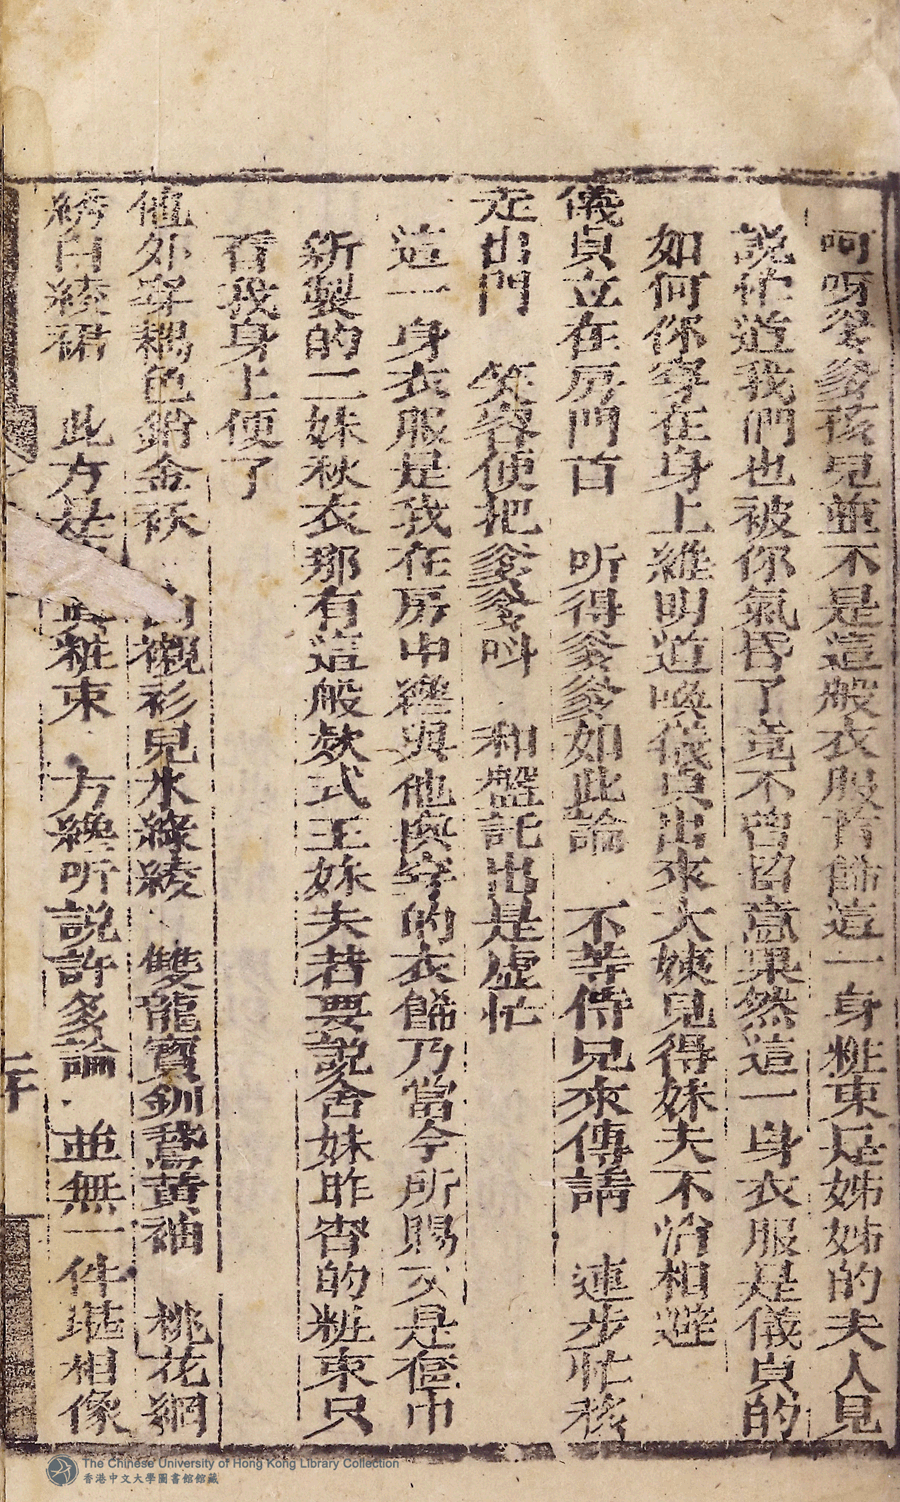 呵呀爹爹孩兒並不是這般衣服首飾這一身粧束是姊姊的夫人見
說忙道我們也被你氣昏了竟不曾留意果然這一身衣服是儀貞的
如何你穿在身上維明道喚儀貞出來大姨兒得妹夫不消相避
儀貞立在房門首 听得爹爹如此論 不等侍兒來傳請 連步忙移
走出門 笑容便把爹爹呌 和盤託出是虛忙
這一身衣服是我在房中纔與他換穿的衣餙乃當今所賜又是舊巾
新製的二妹秋衣那有這般欵式王妹夫若要說舍妹昨宵的粧束只
看我身上便了
他外穿耦色銷金袄 內襯衫兒水綠綾 雙龍寶釧鵞黃袖 桃花綢
綉白綾裙 此方是 真粧束 方纔听說許多論 並無一件堪相像
二十
The Chinese University of Hong Kong Library Collection
香港中文大學圖書館館藏